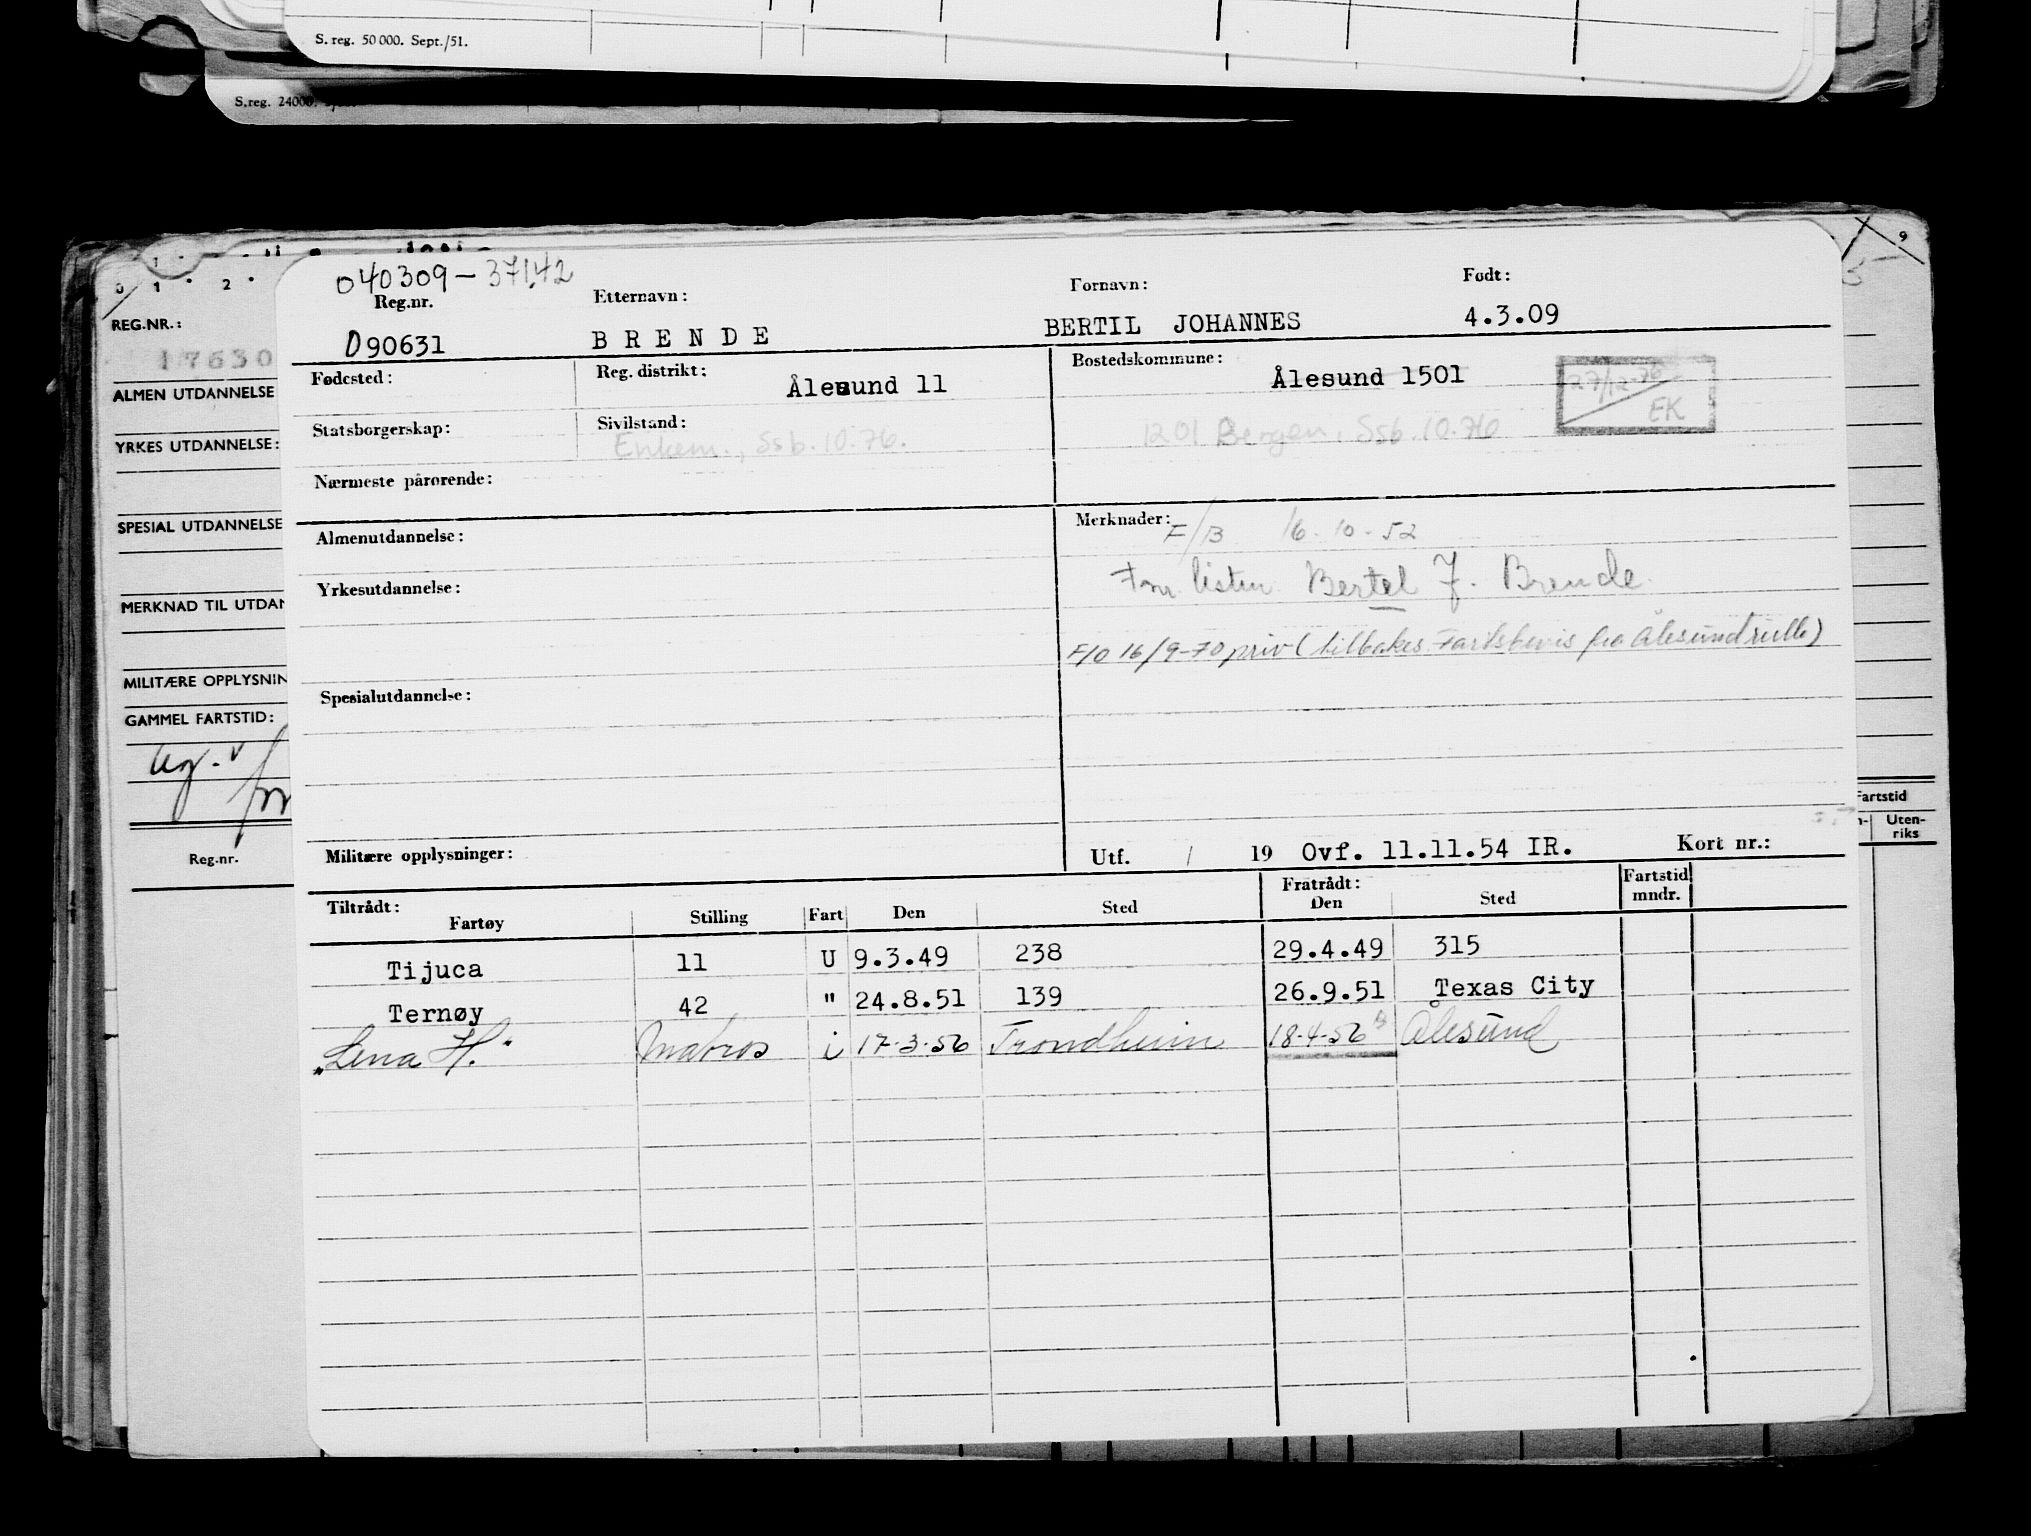 S. reg. 50 000. Sept./51.
S.reg. 24000.
0 1 2
9
REG.NR.:
17630
ALMEN UTDANNELSE
YRKES UTDANNELSE:
SPESIAL UTDANNELSE
MERKNAD TIL UTDAN
MILITÆRE OPPLYSNIN
GAMMEL FARTSTID:
Reg.nr.
Fartstid
Uten-
riks
040309-37142
Reg.nr. Etternavn: Fornavn: Født:
090631 B R E N D E BERTIL JOHANNES 4.3.09
Fødested: Reg. distrikt: Ålesund 11 Bostedskommune: Ålesund 1501
27/12-76
EK
Statsborgerskap: Sivilstand:
Enkem., Ssb. 10.76. 1201 Bergen, Ssb. 10.76
Nærmeste pårørende:
Almenutdannelse: Merknader: F/B 16-10-52
Fnr. listen Bertel J. Brende
Yrkesutdannelse:
F/O 16/9-70 priv (tilbakes. Fartsbevis fra Ålesund rulle)
Spesialutdannelse:
Militære opplysninger: Utf. / 19 Ovf. 11.11.54 IR. Kort nr.:
Tiltrådt: Fratrådt: Fartstid
Fartøy Stilling Fart Den Sted Den Sted mndr.
Tijuca 11 U 9.3.49 238 29.4.49 315
Ternøy 42 " 24.8.51 139 26.9.51 Texas City
"Lena H." Matros i 17-3-56 Trondheim 18-4-56 B Ålesund